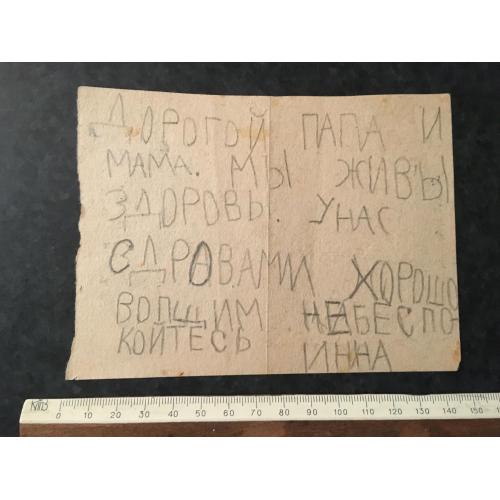 ДОРОГОЙ ПАПА И
МАМА. МЫ ЖИВЫ
ЗДОРОВЫ. УНАС
СДРОВАМИ ХОРОШО
ВОПЩИМ НЕБЕСПО-
КОЙТЕСЬ ИННА
0 10 20 30 40 50 60 70 80 90 100 110 120 130 140 150